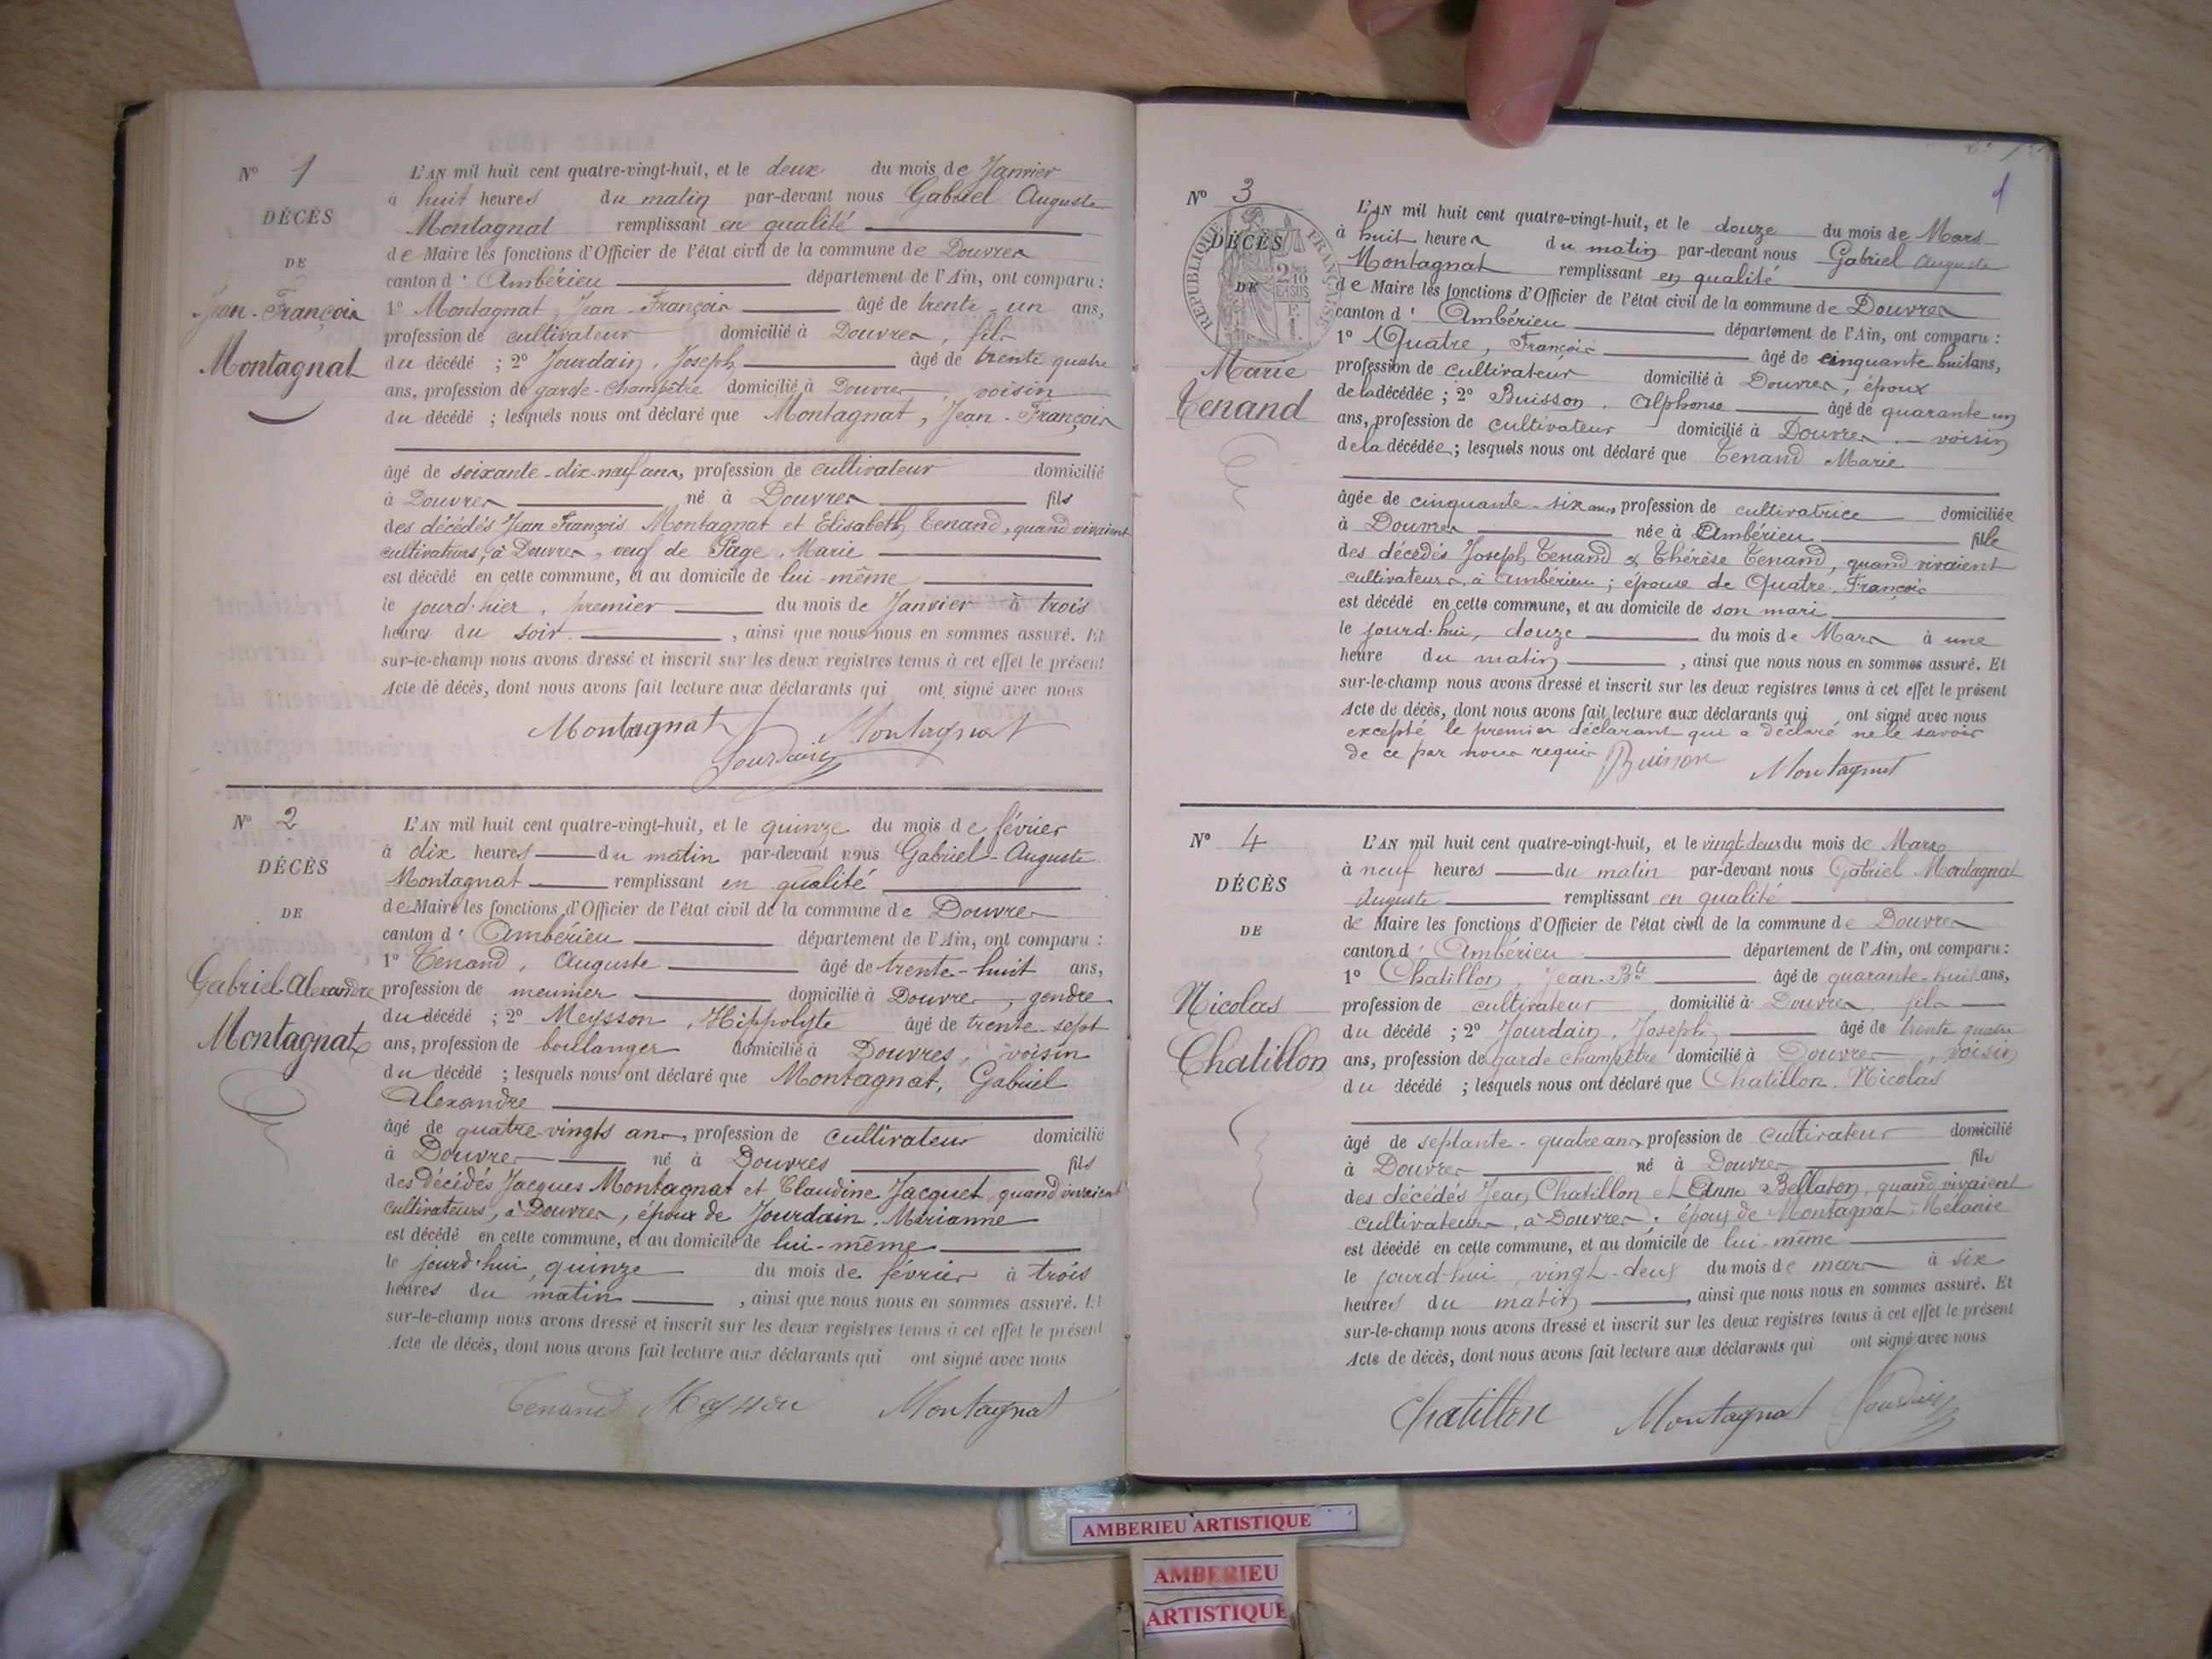 N° 1
DÉCÈS
DE
Jean-François
Montagnat
L'AN mil huit cent quatre-vingt-huit, et le deux du mois de Janvier
à huit heures du matin par-devant nous Gabriel Auguste
Montagnat remplissant en qualité
de Maire les fonctions d'Officier de l'état civil de la commune de Douvres
canton d' Ambérieu département de l'Ain, ont comparu :
1° Montagnat, Jean-François âgé de trente-un ans,
profession de cultivateur domicilié à Douvres, fils
du décédé ; 2° Jourdain, Joseph âgé de trente quatre
ans, profession de garde-champêtre domicilié à Douvres, voisin
du décédé ; lesquels nous ont déclaré que Montagnat, Jean-François
âgé de soixante-dix-neuf ans, profession de cultivateur domicilié
à Douvres né à Douvres fils
des décédés Jean François Montagnat et Elisabeth Tenand, quand vivaient
cultivateurs, à Douvres, veuf de Page, Marie
est décédé en cette commune, et au domicile de lui-même
le jourd'hier, premier du mois de Janvier à trois
heures du soir, ainsi que nous nous en sommes assuré. Et
sur-le-champ nous avons dressé et inscrit sur les deux registres tenus à cet effet le présent
Acte de décès, dont nous avons fait lecture aux déclarants qui ont signé avec nous
Montagnat Montagnat
Jourdain
N° 2
DÉCÈS
DE
Gabriel Alexandre
Montagnat
L'AN mil huit cent quatre-vingt-huit, et le quinze du mois de février
à dix heures du matin par-devant nous Gabriel-Auguste
Montagnat remplissant en qualité
de Maire les fonctions d'Officier de l'état civil de la commune de Douvres
canton d' Ambérieu département de l'Ain, ont comparu :
1° Tenand, Auguste âgé de trente-huit ans,
profession de meunier domicilié à Douvres, gendre
du décédé ; 2° Meysson, Hippolyte âgé de trente-sept
ans, profession de boulanger domicilié à Douvres, voisin
du décédé ; lesquels nous ont déclaré que Montagnat, Gabriel
Alexandre
âgé de quatre-vingts ans, profession de cultivateur domicilié
à Douvres né à Douvres fils
des décédés Jacques Montagnat et Claudine Jacquet, quand vivaient
cultivateurs, à Douvres, époux de Jourdain, Marianne
est décédé en cette commune, et au domicile de lui-même
le jourd'hui, quinze du mois de février à trois
heures du matin, ainsi que nous nous en sommes assuré. Et
sur-le-champ nous avons dressé et inscrit sur les deux registres tenus à cet effet le présent
Acte de décès, dont nous avons fait lecture aux déclarants qui ont signé avec nous
Tenand Meysson Montagnat
1
N° 3
DÉCÈS
DE
RÉPUBLIQUE FRANÇAISE
Marie
Tenand
L'AN mil huit cent quatre-vingt-huit, et le douze du mois de Mars
à huit heures du matin par-devant nous Gabriel Auguste
Montagnat remplissant en qualité
de Maire les fonctions d'Officier de l'état civil de la commune de Douvres
canton d' Ambérieu département de l'Ain, ont comparu :
1° Quatre, François âgé de cinquante huit ans,
profession de cultivateur domicilié à Douvres, époux
de la décédée ; 2° Buisson, Alphonse âgé de quarante-un
ans, profession de cultivateur domicilié à Douvres, voisin
de la décédée ; lesquels nous ont déclaré que Tenand Marie
âgée de cinquante-six ans, profession de cultivatrice domiciliée
à Douvres née à Ambérieu fille
des décédés Joseph Tenand & Thérèse Tenand, quand vivaient
cultivateurs, à Ambérieu ; épouse de Quatre, François
est décédé en cette commune, et au domicile de son mari
le jourd'hui, douze du mois de Mars à une
heure du matin, ainsi que nous nous en sommes assuré. Et
sur-le-champ nous avons dressé et inscrit sur les deux registres tenus à cet effet le présent
Acte de décès, dont nous avons fait lecture aux déclarants qui ont signé avec nous
excepté le premier déclarant qui a déclaré ne le savoir
de ce par nous requis Buisson Montagnat
N° 4
DÉCÈS
DE
Nicolas
Chatillon
L'AN mil huit cent quatre-vingt-huit, et le vingt-deux du mois de Mars
à neuf heures du matin par-devant nous Gabriel Montagnat
Auguste remplissant en qualité
de Maire les fonctions d'Officier de l'état civil de la commune de Douvres
canton d' Ambérieu département de l'Ain, ont comparu :
1° Chatillon, Jean-Bte âgé de quarante-huit ans,
profession de cultivateur domicilié à Douvres, fils
du décédé ; 2° Jourdain, Joseph âgé de trente quatre
ans, profession de garde champêtre domicilié à Douvres, voisin
du décédé ; lesquels nous ont déclaré que Chatillon, Nicolas
âgé de septante-quatre ans, profession de cultivateur domicilié
à Douvres né à Douvres fils
des décédés Jean Chatillon et Anne Bellaton, quand vivaient
cultivateurs, à Douvres, époux de Montagnat, Mélanie
est décédé en cette commune, et au domicile de lui-même
le jourd'hui, vingt-deux du mois de mars à six
heures du matin, ainsi que nous nous en sommes assuré. Et
sur-le-champ nous avons dressé et inscrit sur les deux registres tenus à cet effet le présent
Acte de décès, dont nous avons fait lecture aux déclarants qui ont signé avec nous
Chatillon Montagnat Jourdain
AMBERIEU ARTISTIQUE
AMBERIEU
ARTISTIQUE